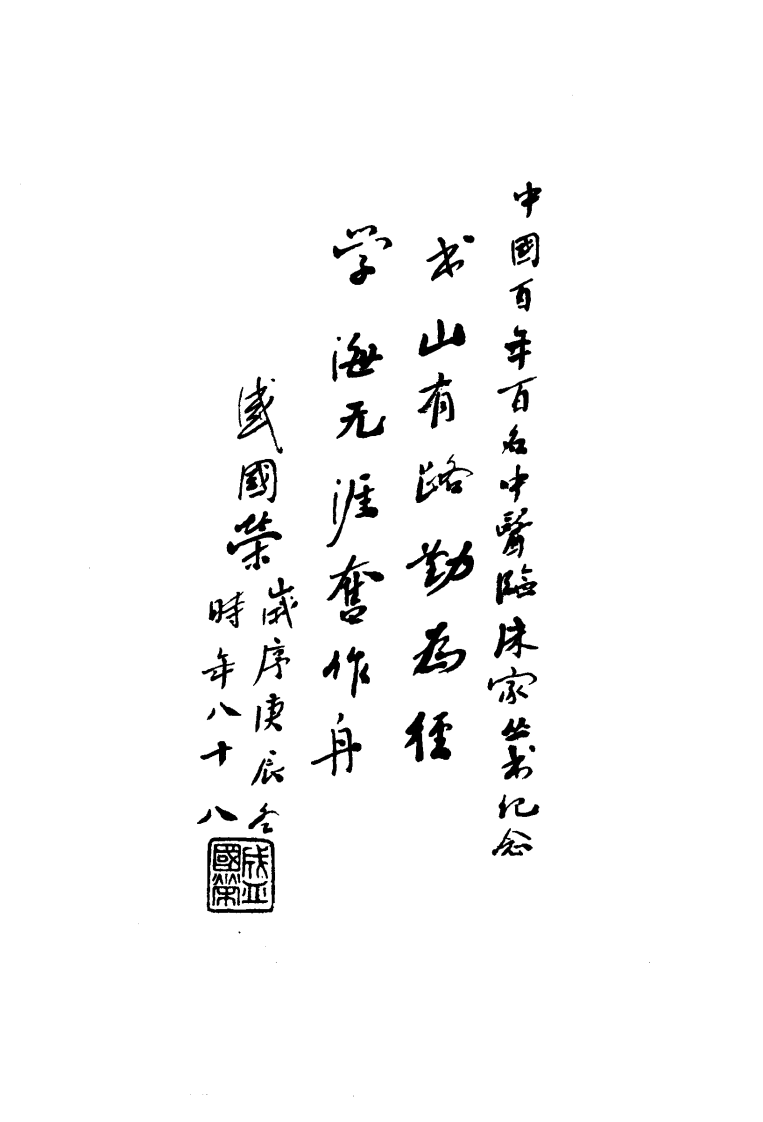 中國百年百名中醫臨床家丛书纪念
书山有路勤為徑
学海无涯奮作舟
盛國榮
歲序庚辰冬
時年八十八
盛國榮